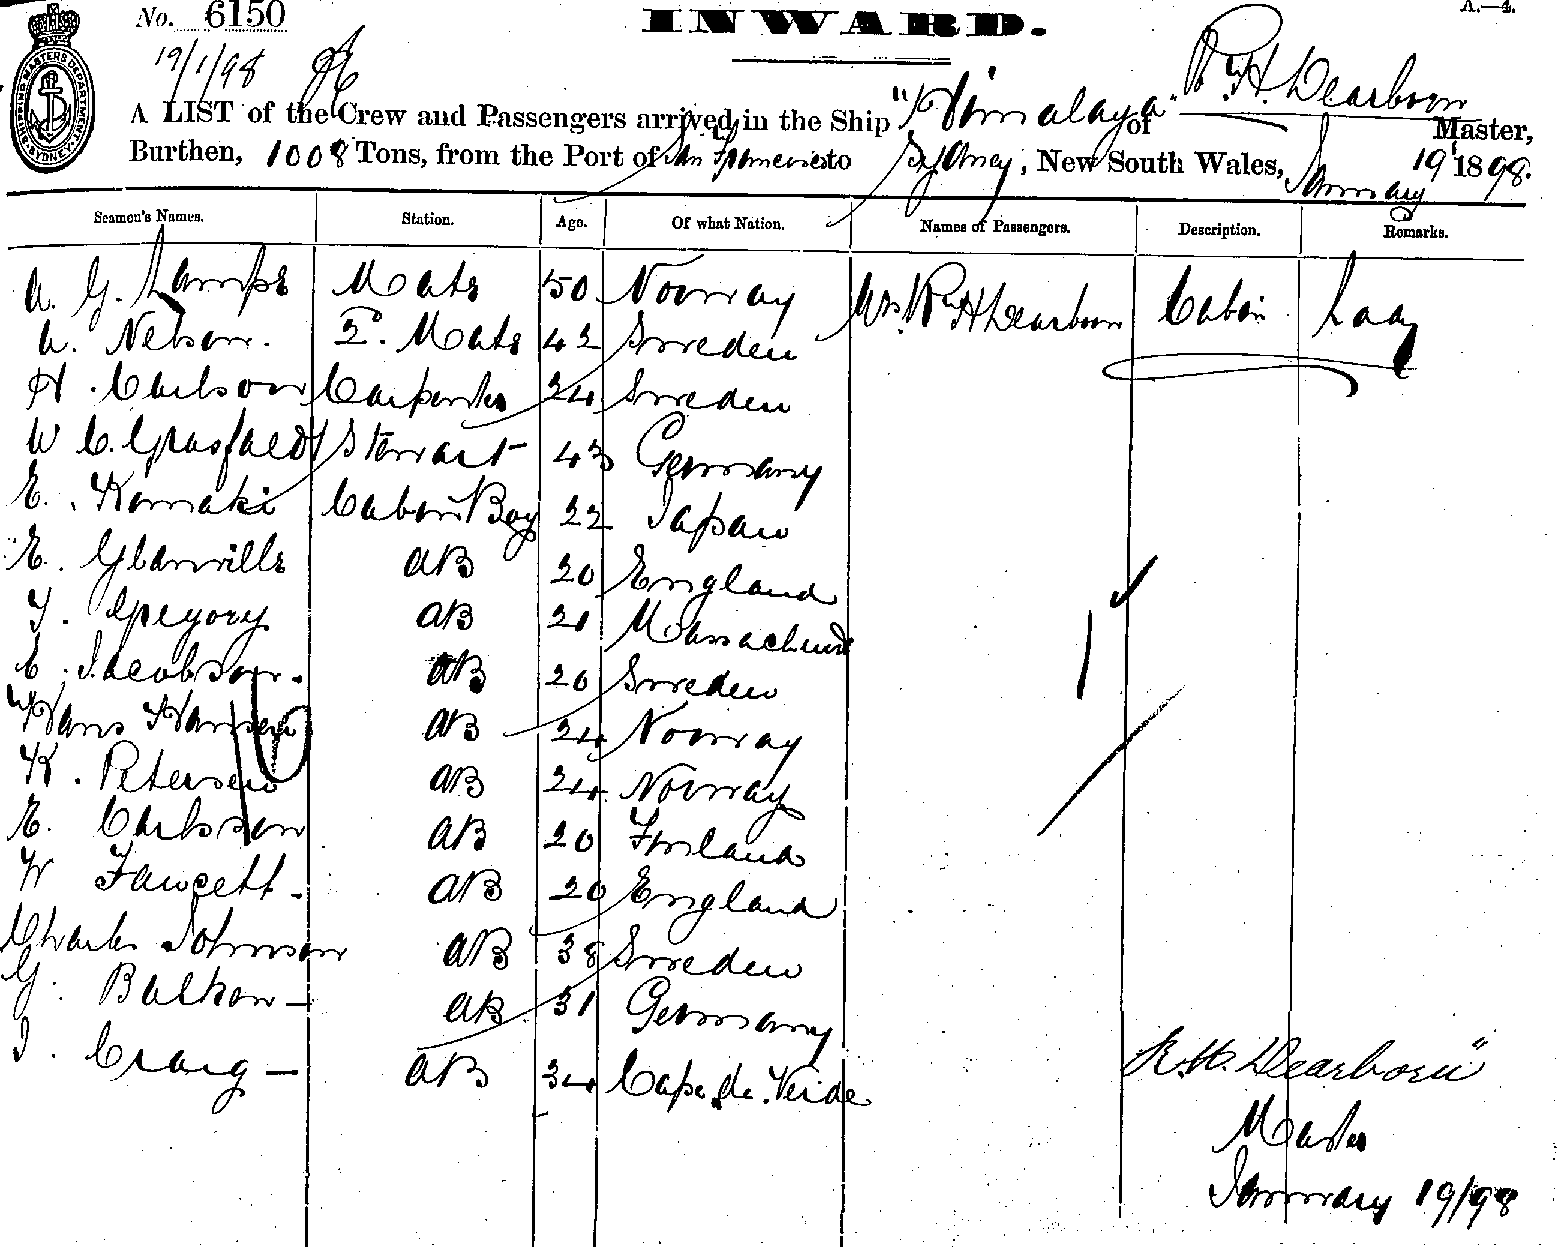 No. 6150
INWARD.
A.—4.
SHIPPING MASTERS DEPARTMENT SYDNEY
19/1/98
R. H. Dearborn
A LIST of the Crew and Passengers arrived in the Ship "Himalaya" of Master,
Burthen, 1008 Tons, from the Port of San Francisco to Sydney, New South Wales, January 19 1898.
Seamen's Names. Station. Age. Of what Nation. Names of Passengers. Description. Remarks.
A. G. Mate 50 Norway Mrs. R H Dearborn Cabin Lady
A. Nelson. 2º. Mate 42 Sweden
H. Carlson Carpenter 24 Sweden
W C. Stewart 43 Germany
E. Komaki Cabin Boy 22 Japan
E. Glanville AB 20 England
T. Gregory AB 21 Massachus
E. Jacobson. AB 20 Sweden
Hans Hansen AB 24 Norway
K. Petersen AB 24 Norway
E. Carlsson AB 20 Finland
W Fawcett - AB 20 England
Charles Johnson AB 38 Sweden
G. Balkow - AB 31 Germany
J. Craig - AB 34 Cape de Verde
R. H. Dearborn"
Master
January 19/98